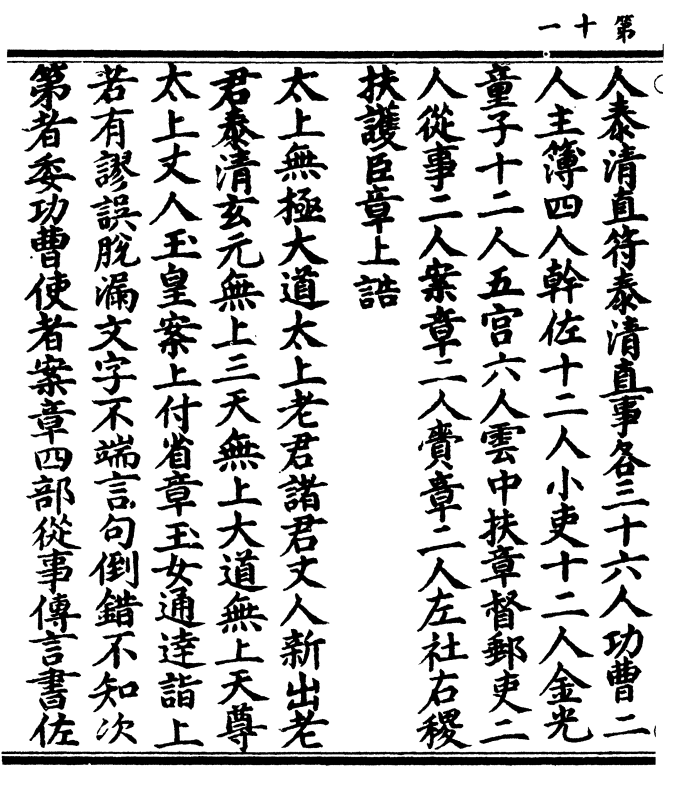 第十一
人泰清直符泰清直事各三十六人功曹二
人主簿四人幹佐十二人小吏十二人金光
童子十二人五宫六人雲中扶章督郵吏二
人從事二人案章二人賫章二人左社右稷
扶護臣章上詣
太上無極大道太上老君諸君丈人新出老
君泰清玄元無上三天無上大道無上天尊
太上丈人玉皇案上付省章玉女通逹詣上
若有謬誤脫漏文字不端言句倒錯不知次
第者委功曹使者案章四部從事傳言書佐